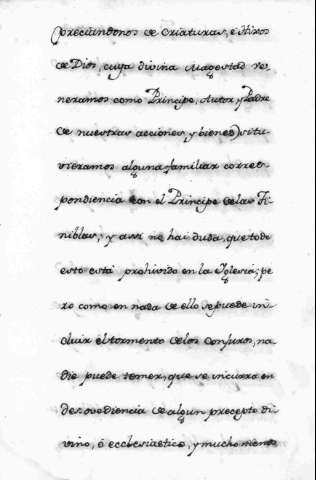 (preciandonos de Criaturas, e Hixos
de Dios, cuya divina Magestad ve-
neramos como Principe, Autor, y Padre
de nuestras acciones, y bienes) si tu-
vieramos alguna familiar corres-
pondiencia con el Principe de las Ti-
nieblas; y assi no hai duda, que todo
esto está prohivido en la Iglesia; pe-
ro como en nada de ello se puede in-
cluir el tormento de los Conjuros, na-
die puede temer, que se incurra en
desovediencia de algun precepto di-
vino, ó ecclesiastico, y mucho menos